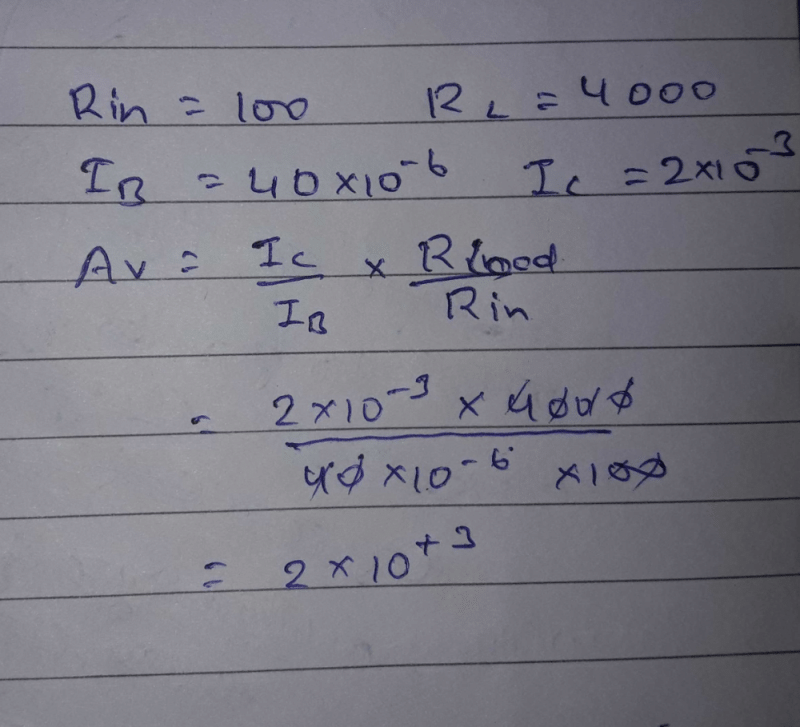 Rin = 100 RL = 4000
IB = 40×10⁻⁶ Ic = 2×10⁻³
Av = Ic/IB × Rload/Rin
= 2×10⁻³ × 4000 / 40×10⁻⁶ ×100
= 2×10⁺³